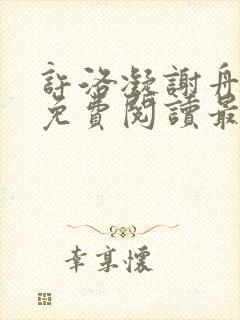 許洛凝謝丹
免費閱讀最
幸享懷